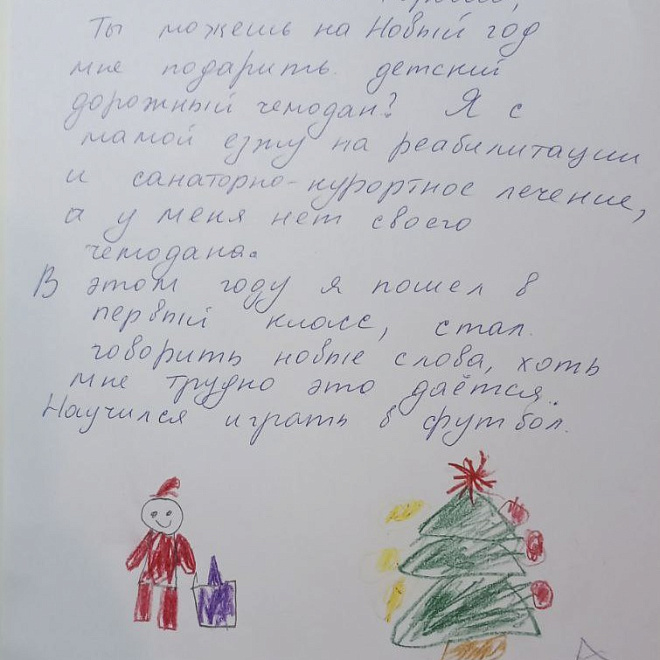 Ты можешь на Новый год
мне подарить детский
дорожный чемодан? Я с
мамой езжу на реабилитации
и санаторно-курортное лечение,
а у меня нет своего
чемодана.
В этом году я пошел в
первый класс, стал
говорить новые слова, хоть
мне трудно это даётся.
Научился играть в футбол.